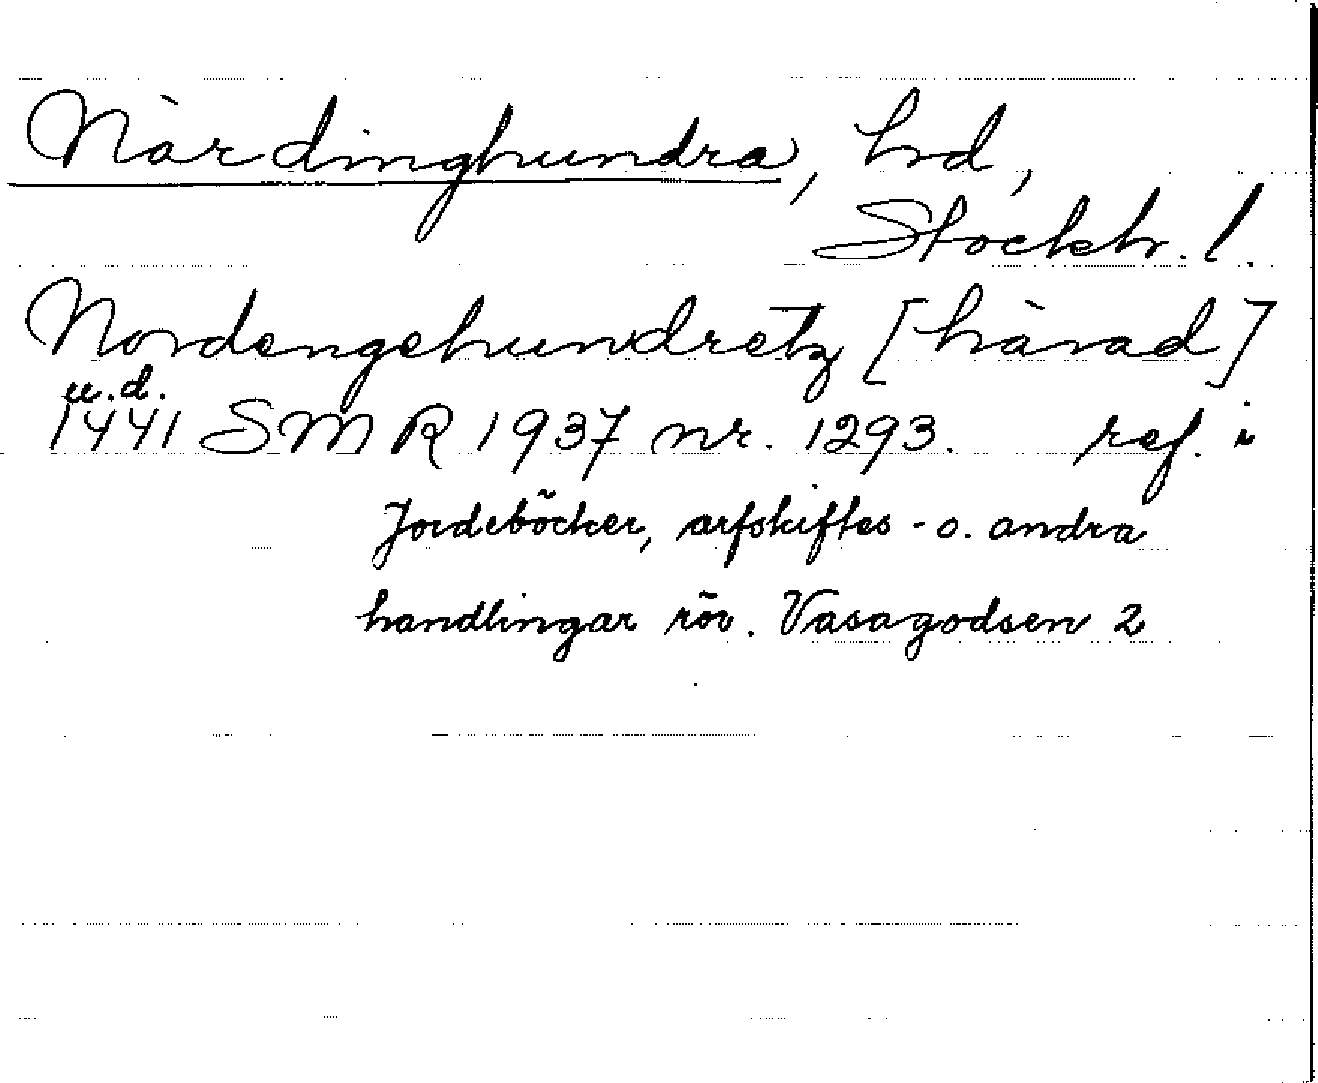 Närdinghundra, hd,
Stockh. l.
Nordengehundretz [härad]
u.d.
1441 SMR 1937 nr. 1293. ref. i
Jordeböcker, arfskiftes - o. andra
handlingar rör. Vasagodsen 2